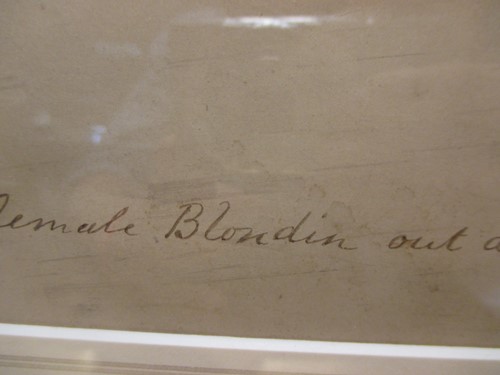 female Blondin out a